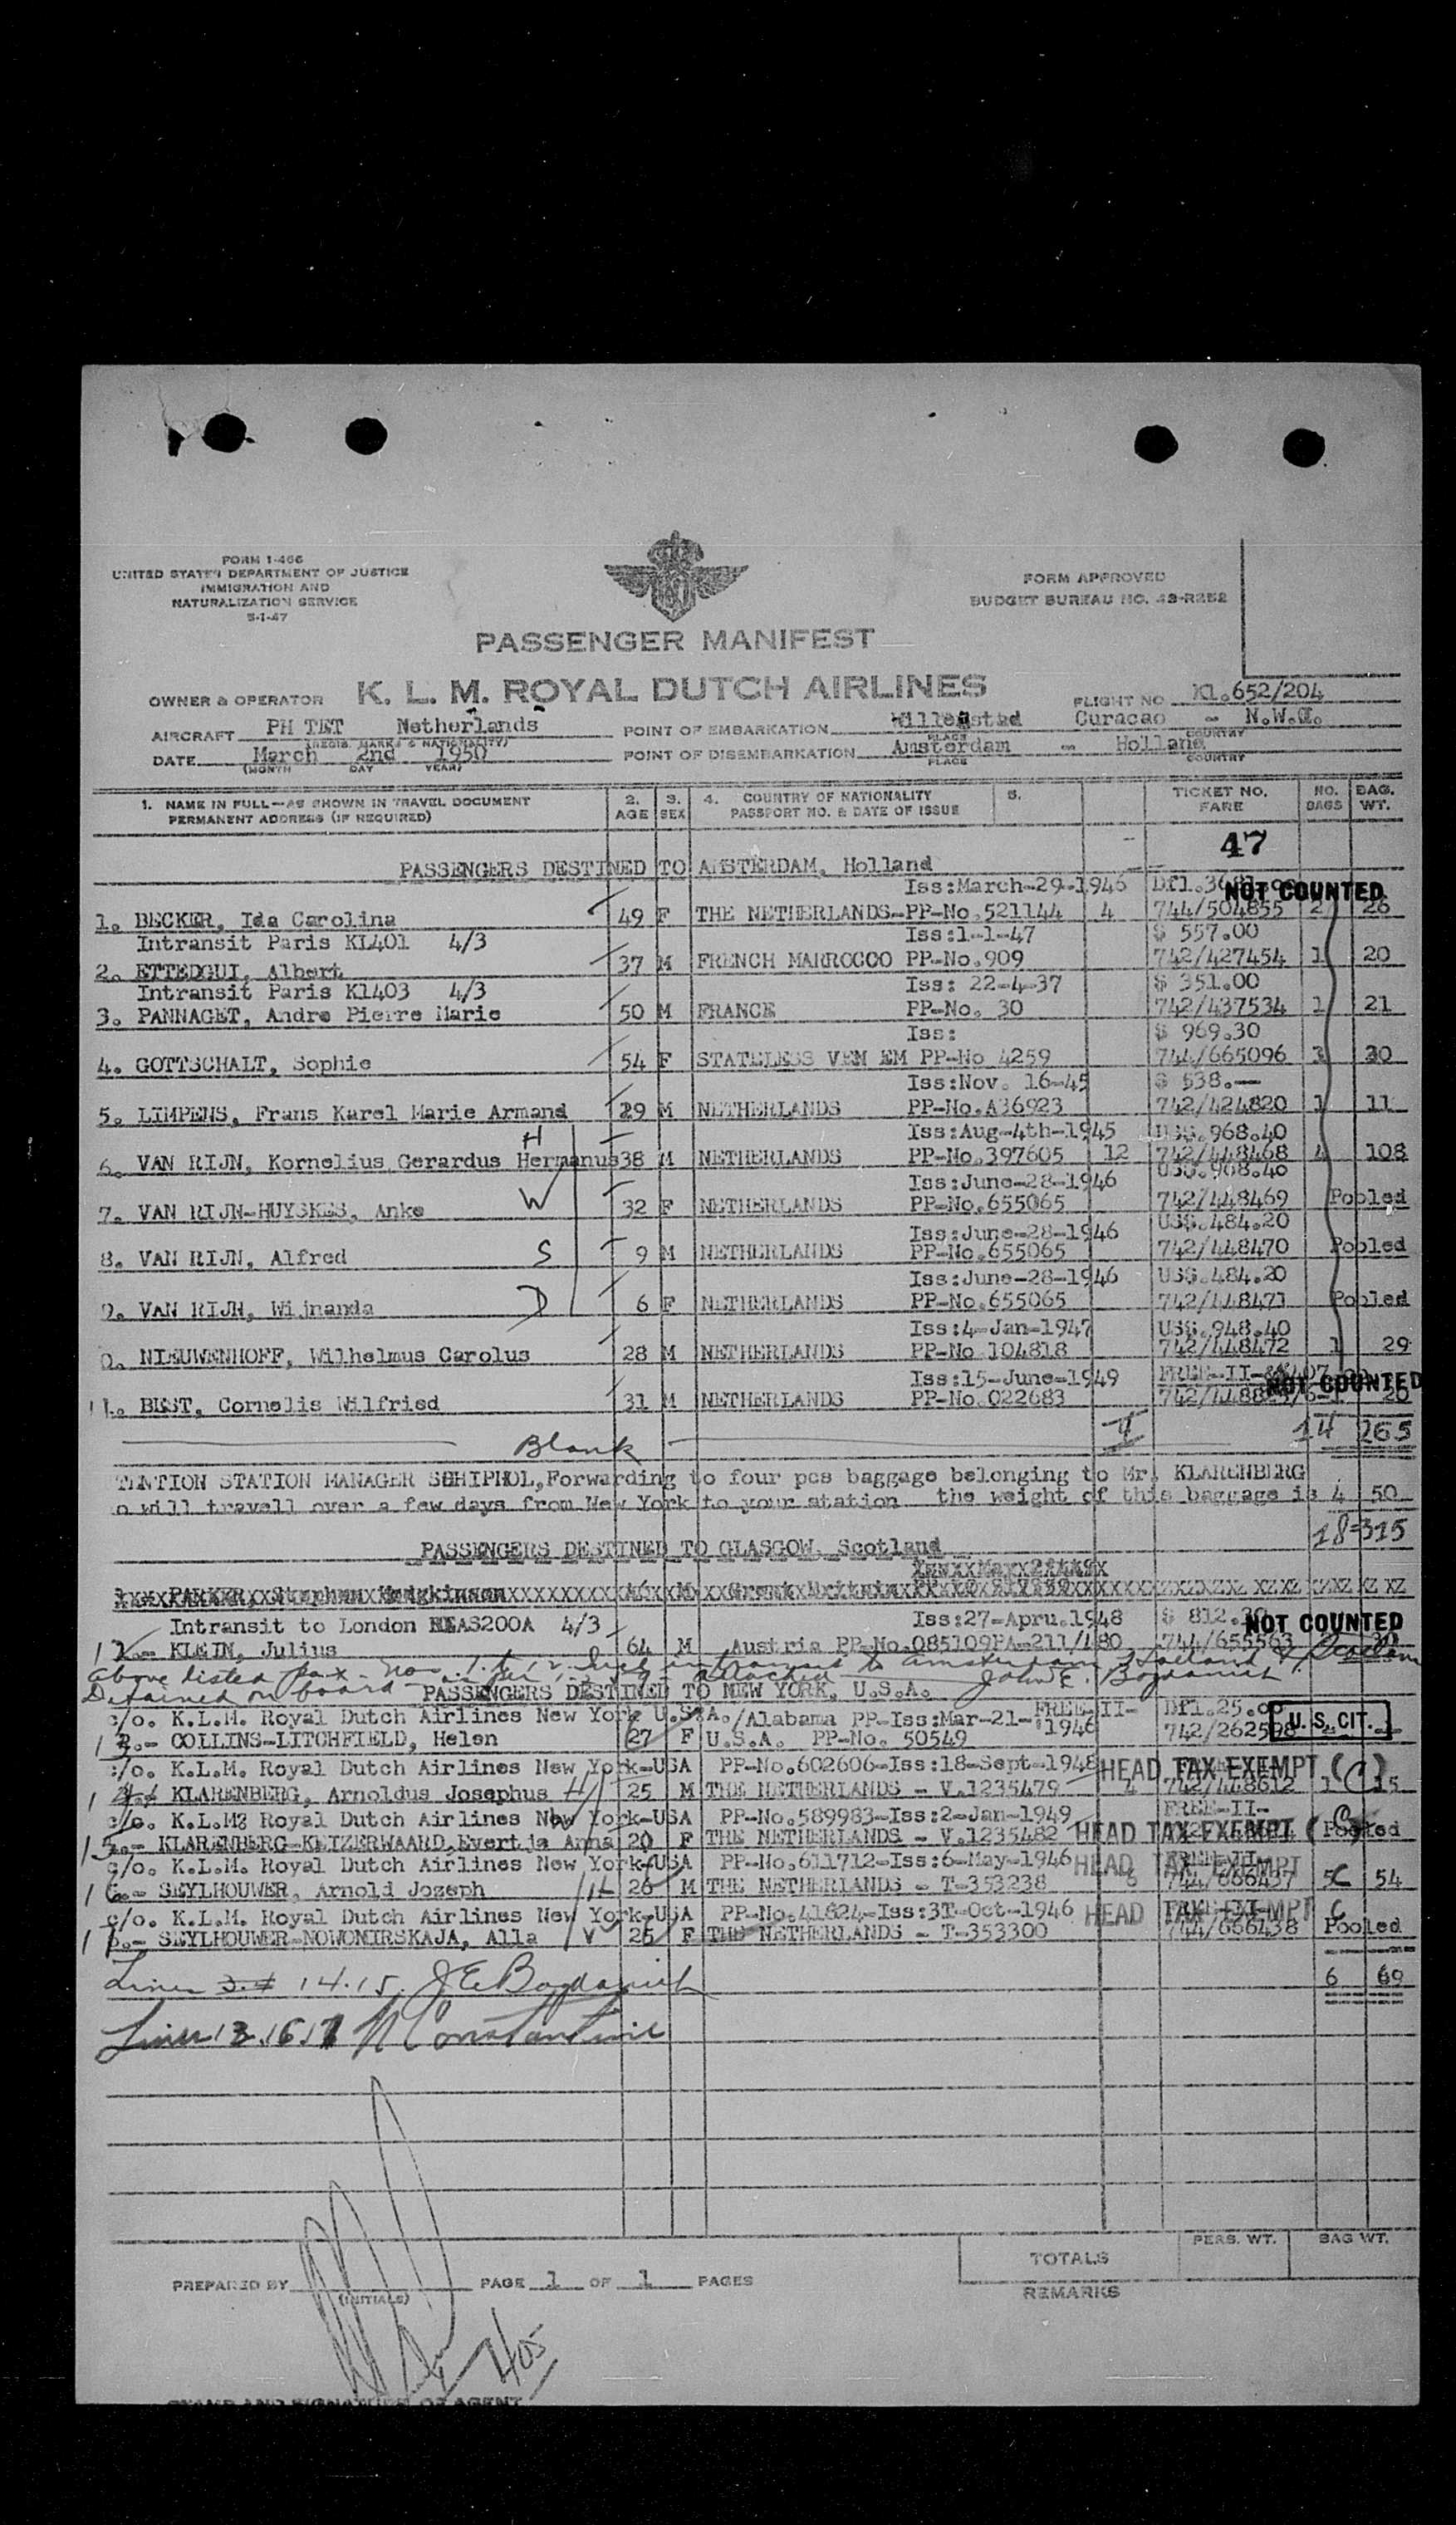 FORM I-466
UNITED STATES DEPARTMENT OF JUSTICE
IMMIGRATION AND
NATURALIZATION SERVICE
5-1-47
FORM APPROVED
BUDGET BUREAU NO. 43-R252
PASSENGER MANIFEST
OWNER & OPERATOR K. L. M. ROYAL DUTCH AIRLINES FLIGHT NO. Kl.652/204
AIRCRAFT PH TET Netherlands POINT OF EMBARKATION Willemstad Curacao - N.W.I.
(REGIS. MARKS & NATIONALITY) PLACE COUNTRY
DATE March 2nd 1950 POINT OF DISEMBARKATION Amsterdam - Holland
(MONTH DAY YEAR) PLACE COUNTRY
1. NAME IN FULL—AS SHOWN IN TRAVEL DOCUMENT 2. 3. 4. COUNTRY OF NATIONALITY 5. TICKET NO. NO. BAG.
PERMANENT ADDRESS (IF REQUIRED) AGE SEX PASSPORT NO. & DATE OF ISSUE FARE BAGS WT.
47
PASSENGERS DESTINED TO AMSTERDAM, Holland
Iss:March-29-1946 Dfl. NOT COUNTED
1. BECKER, Ida Carolina 49 F THE NETHERLANDS-PP-No.521144 4 744/504855 2 26
Intransit Paris KL401 4/3 Iss:1-1-47 $ 557.00
2. ETTEDGUI, Albert 37 M FRENCH MARROCCO PP-No.909 742/427454 1 20
Intransit Paris Kl403 4/3 Iss: 22-4-37 $ 351.00
3. PANNAGET, Andre Pierre Marie 50 M FRANCE PP-No. 30 742/437534 1 21
Iss: $ 969.30
4. GOTTSCHALT, Sophie 54 F STATELESS VEM EM PP-No 4259 744/665096 3 30
Iss:Nov. 16-45 $ 538.—
5. LIMPENS, Frans Karel Marie Armand 29 M NETHERLANDS PP-No.A36923 742/424820 1 11
H Iss:Aug-4th-1945 US$.968.40
6. VAN RIJN, Kornelius Gerardus Hermanus 38 M NETHERLANDS PP-No.397605 12 742/448468 4 108
W Iss:June-28-1946 US$.968.40
7. VAN RIJN-HUYSKES, Anke 32 F NETHERLANDS PP-No.655065 742/448469 Pooled
S Iss:June-28-1946 US$.484.20
8. VAN RIJN, Alfred 9 M NETHERLANDS PP-No.655065 742/448470 Pooled
D Iss:June-28-1946 US$.484.20
9. VAN RIJN, Wijnanda 6 F NETHERLANDS PP-No.655065 742/448471 Pooled
Iss:4-Jan-1947 US$.948.40
0. NIEUWENHOFF, Wilhelmus Carolus 28 M NETHERLANDS PP-No 104818 742/448472 1 29
Iss:15-June-1949 FREE-II- NOT COUNTED
11. BEST, Cornelis Wilfried 31 M NETHERLANDS PP-No.022683 20
Blank 14 265
TENTION STATION MANAGER SCHIPHOL,Forwarding to four pcs baggage belonging to Mr. KLARENBERG
o will travell over a few days from New York to your station the weight of this baggage is 4 50
18-315
PASSENGERS DESTINED TO GLASGOW, Scotland
PARKER, Stephen Hodgkinson M Great Britain
Intransit to London AS200A 4/3 Iss:27-Apru.1948 $ 812. NOT COUNTED
12.- KLEIN, Julius 64 M Austria PP-No.085109PA-211/480 744/655563
above listed pax - nos. 1 to 12 incl. intransit to Amsterdam Holland & Scotland
Detained on board John E. Bogdanich
PASSENGERS DESTINED TO NEW YORK, U.S.A.
c/o. K.L.M. Royal Dutch Airlines New York U.S.A./Alabama PP-Iss:Mar-21-1946 FREE-II- Dfl.25.00
13.- COLLINS-LITCHFIELD, Helen 27 F U.S.A. PP-No. 50549 742/262598 U.S. CIT.
c/o. K.L.M. Royal Dutch Airlines New York-USA PP-No.602606-Iss:18-Sept-1948 HEAD TAX EXEMPT (C)
14 KLARENBERG, Arnoldus Josephus H 25 M THE NETHERLANDS - V.1235479 4 742/448612 1 15
c/o. K.L.M? Royal Dutch Airlines New York-USA PP-No.589983-Iss:2-Jan-1949 FREE-II-
15.- KLARENBERG-KEIZERWAARD,Evertja Anna W 20 F THE NETHERLANDS - V.1235482 HEAD TAX EXEMPT (C) Pooled
c/o. K.L.M. Royal Dutch Airlines New York-USA PP-No.611712-Iss:6-May-1946 HEAD TAX EXEMPT
16.- SEYLHOUWER, Arnold Jozeph H 26 M THE NETHERLANDS - T-353238 6 744/666437 5 C 54
c/o. K.L.M. Royal Dutch Airlines New York-USA PP-No.41824-Iss:31-Oct-1946 HEAD TAX EXEMPT C
17.- SEYLHOUWER-NOWOMIRSKAJA, Alla W 26 F THE NETHERLANDS - T-353300 744/666438 Pooled
Lines 14.15, J E Bogdanich 6 69
Lines 13.16.17 N Constantine
TOTALS PERS. WT. BAG WT.
PREPARED BY (INITIALS) PAGE 1 OF 1 PAGES
REMARKS
405
STAMP AND SIGNATURE OF AGENT